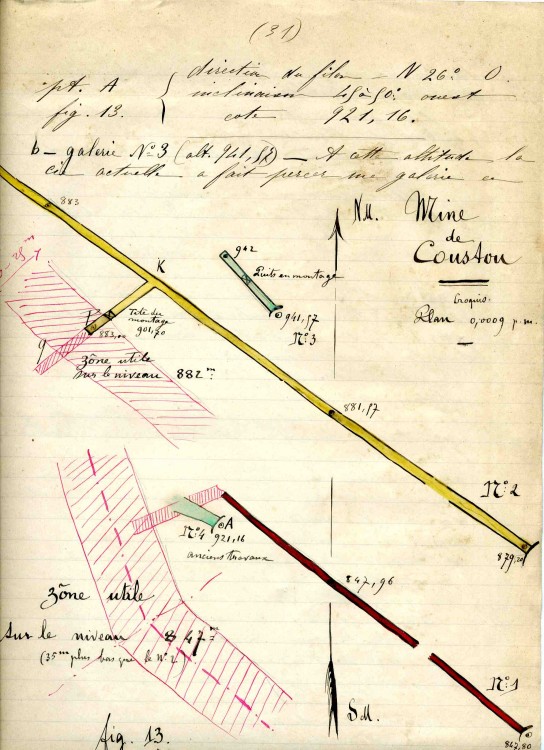 (31)
pt. A
fig. 13.
direction du filon = N 26° O.
inclinaison 45 à 50° ouest
cote 921,16.
b – galerie N° 3 (alt. 941,57) – A cette altitude la
Cie actuelle a fait percer une galerie
N.M.
Mine
de
Couston
Croquis
Plan 0,0009 p.m.
883
K
942
Puits en montage
941,57
N° 3
Tête du
montage
901,70
q
zône utile
sur le niveau 882m
881,57
N° 2
879,20
A
N° 4 921,16
anciens travaux
847,96
zône utile
sur le niveau 847m
(35m plus bas que le N° 2)
N° 1
S.M.
842,80
fig. 13.